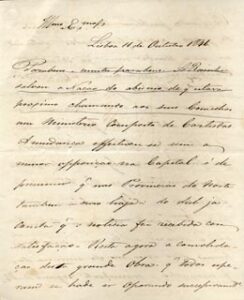 Illmo e Exmo Sr
Lisboa 11 de Outubro 1846
Parabens muitos parabens. A Rainha
salvou a Nação do abismo de q' estava
proxima chamando aos seus Conselhos
um Ministerio composto de Cartistas
A mudança effeituou-se sem a
menor opposição na Capital, é de
presumir q' nas Provincias do Norte
tambem e nas do Sul já
consta q' a noticia foi recebida com
satisfação. Resta agora a consolida-
ção desta grande Obra q' todos espe-
ram se hade ir operando